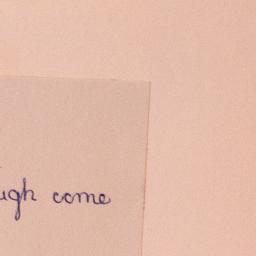 ugh come